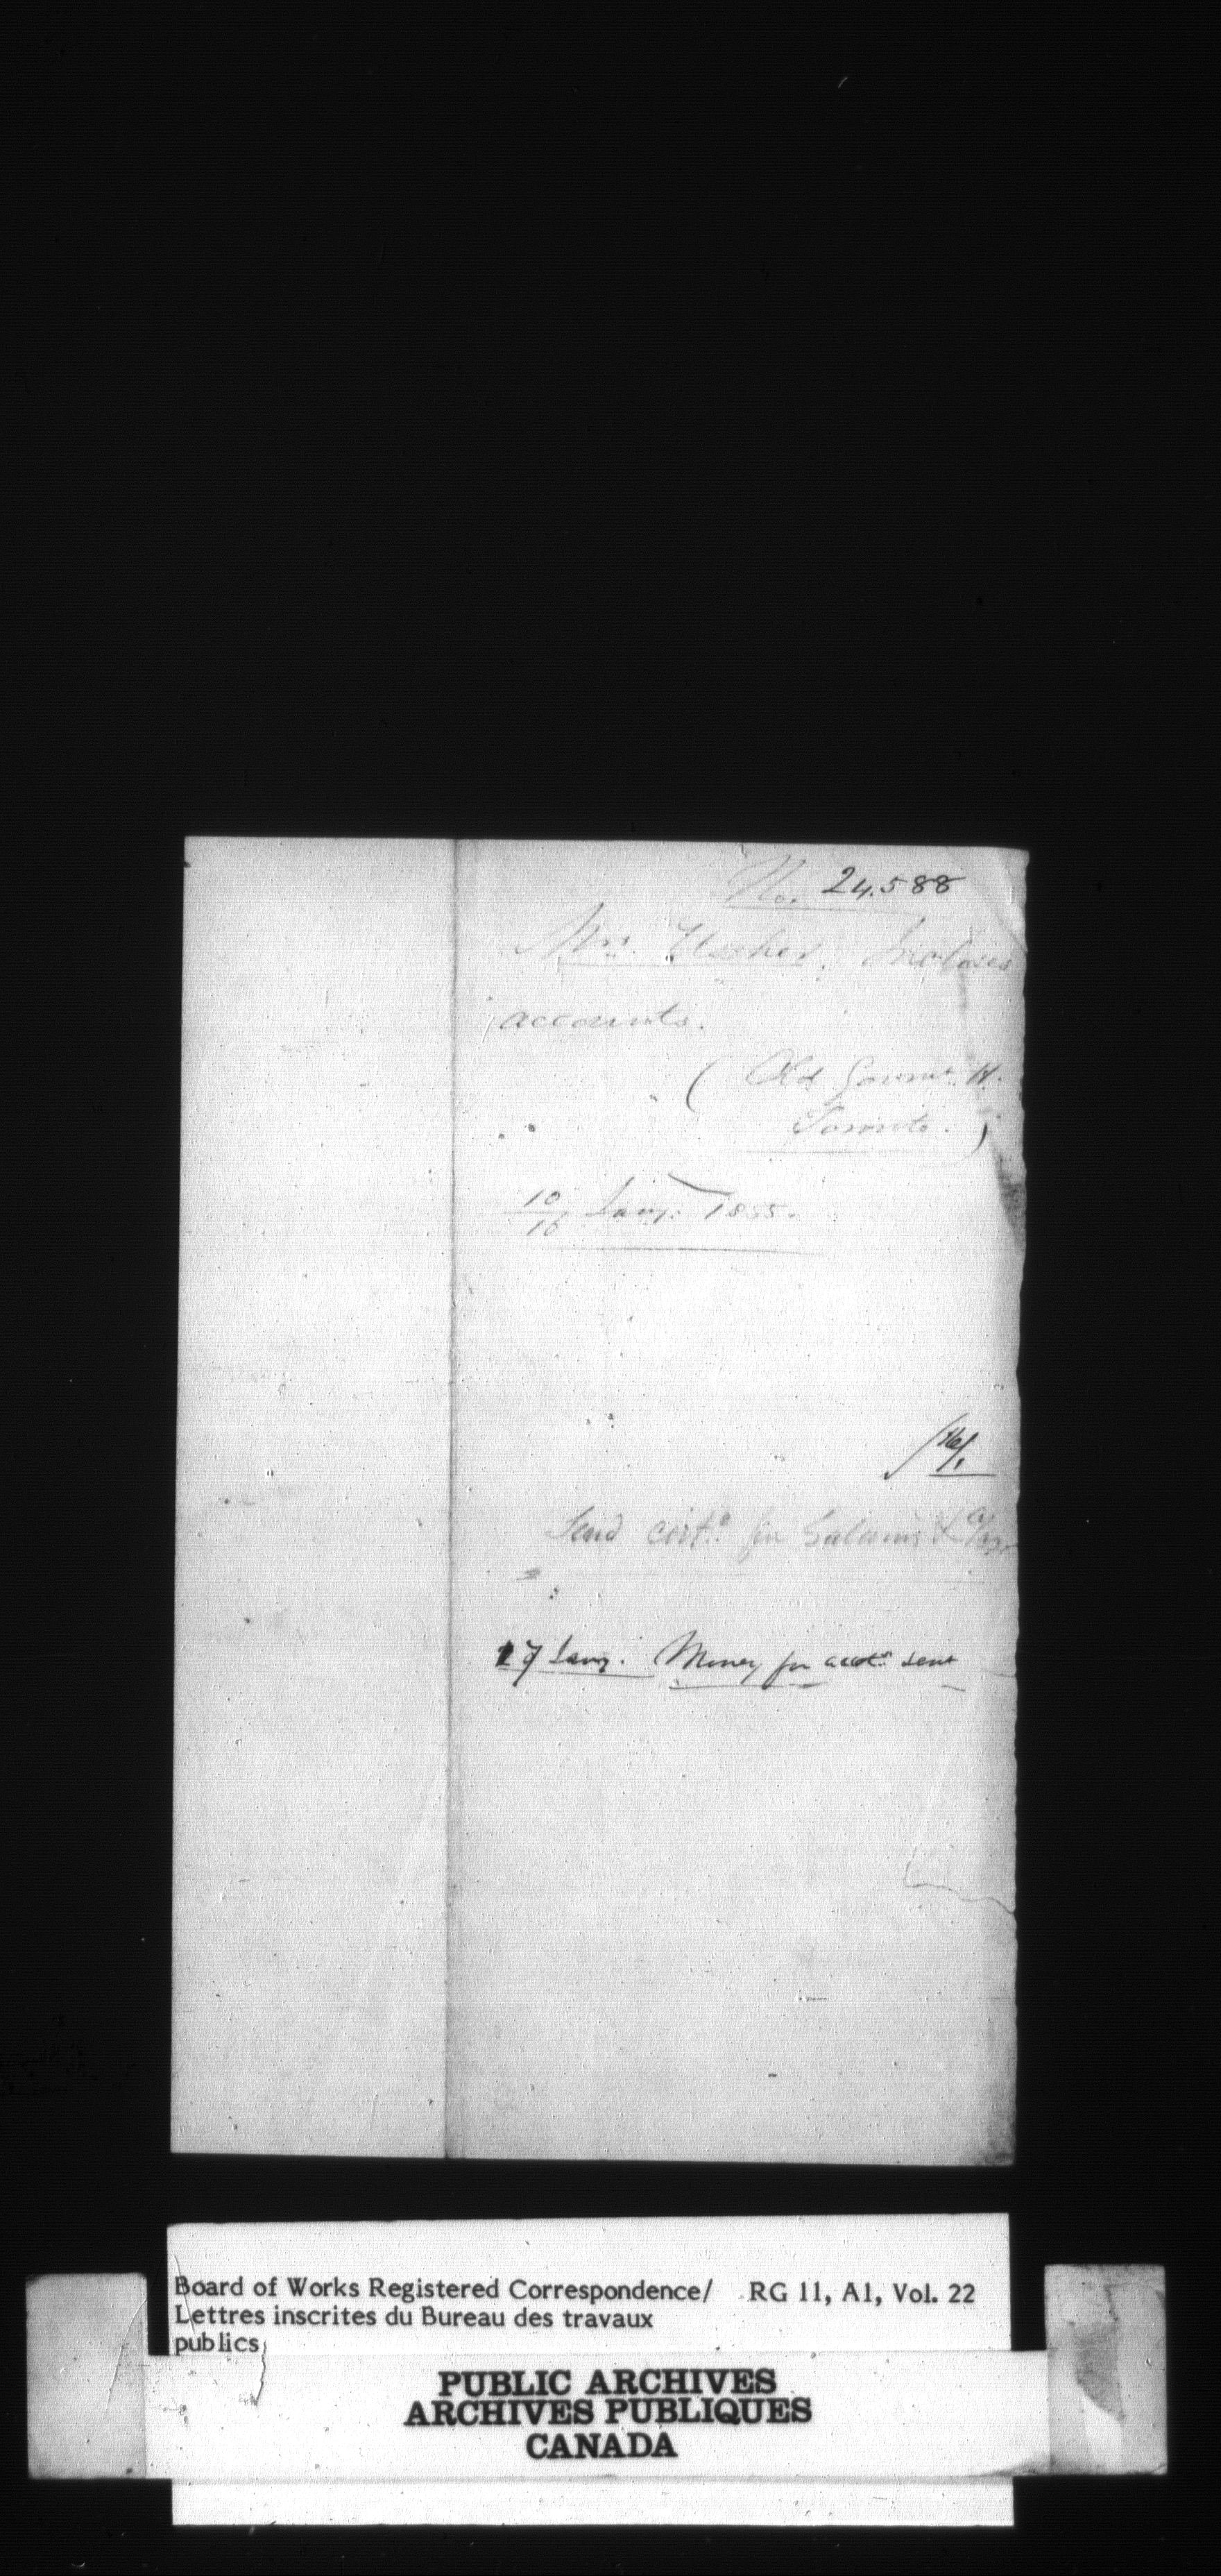 No. 24.588
Mrs. Ussher. Incloses
accounts.
( Old Govmt. H.
Toronto. )
10/16 Jany. 1855.
Send certe. for &
17 Jany. Money for accts. sent
Board of Works Registered Correspondence/ RG 11, A1, Vol. 22
Lettres inscrites du Bureau des travaux
publics
PUBLIC ARCHIVES
ARCHIVES PUBLIQUES
CANADA